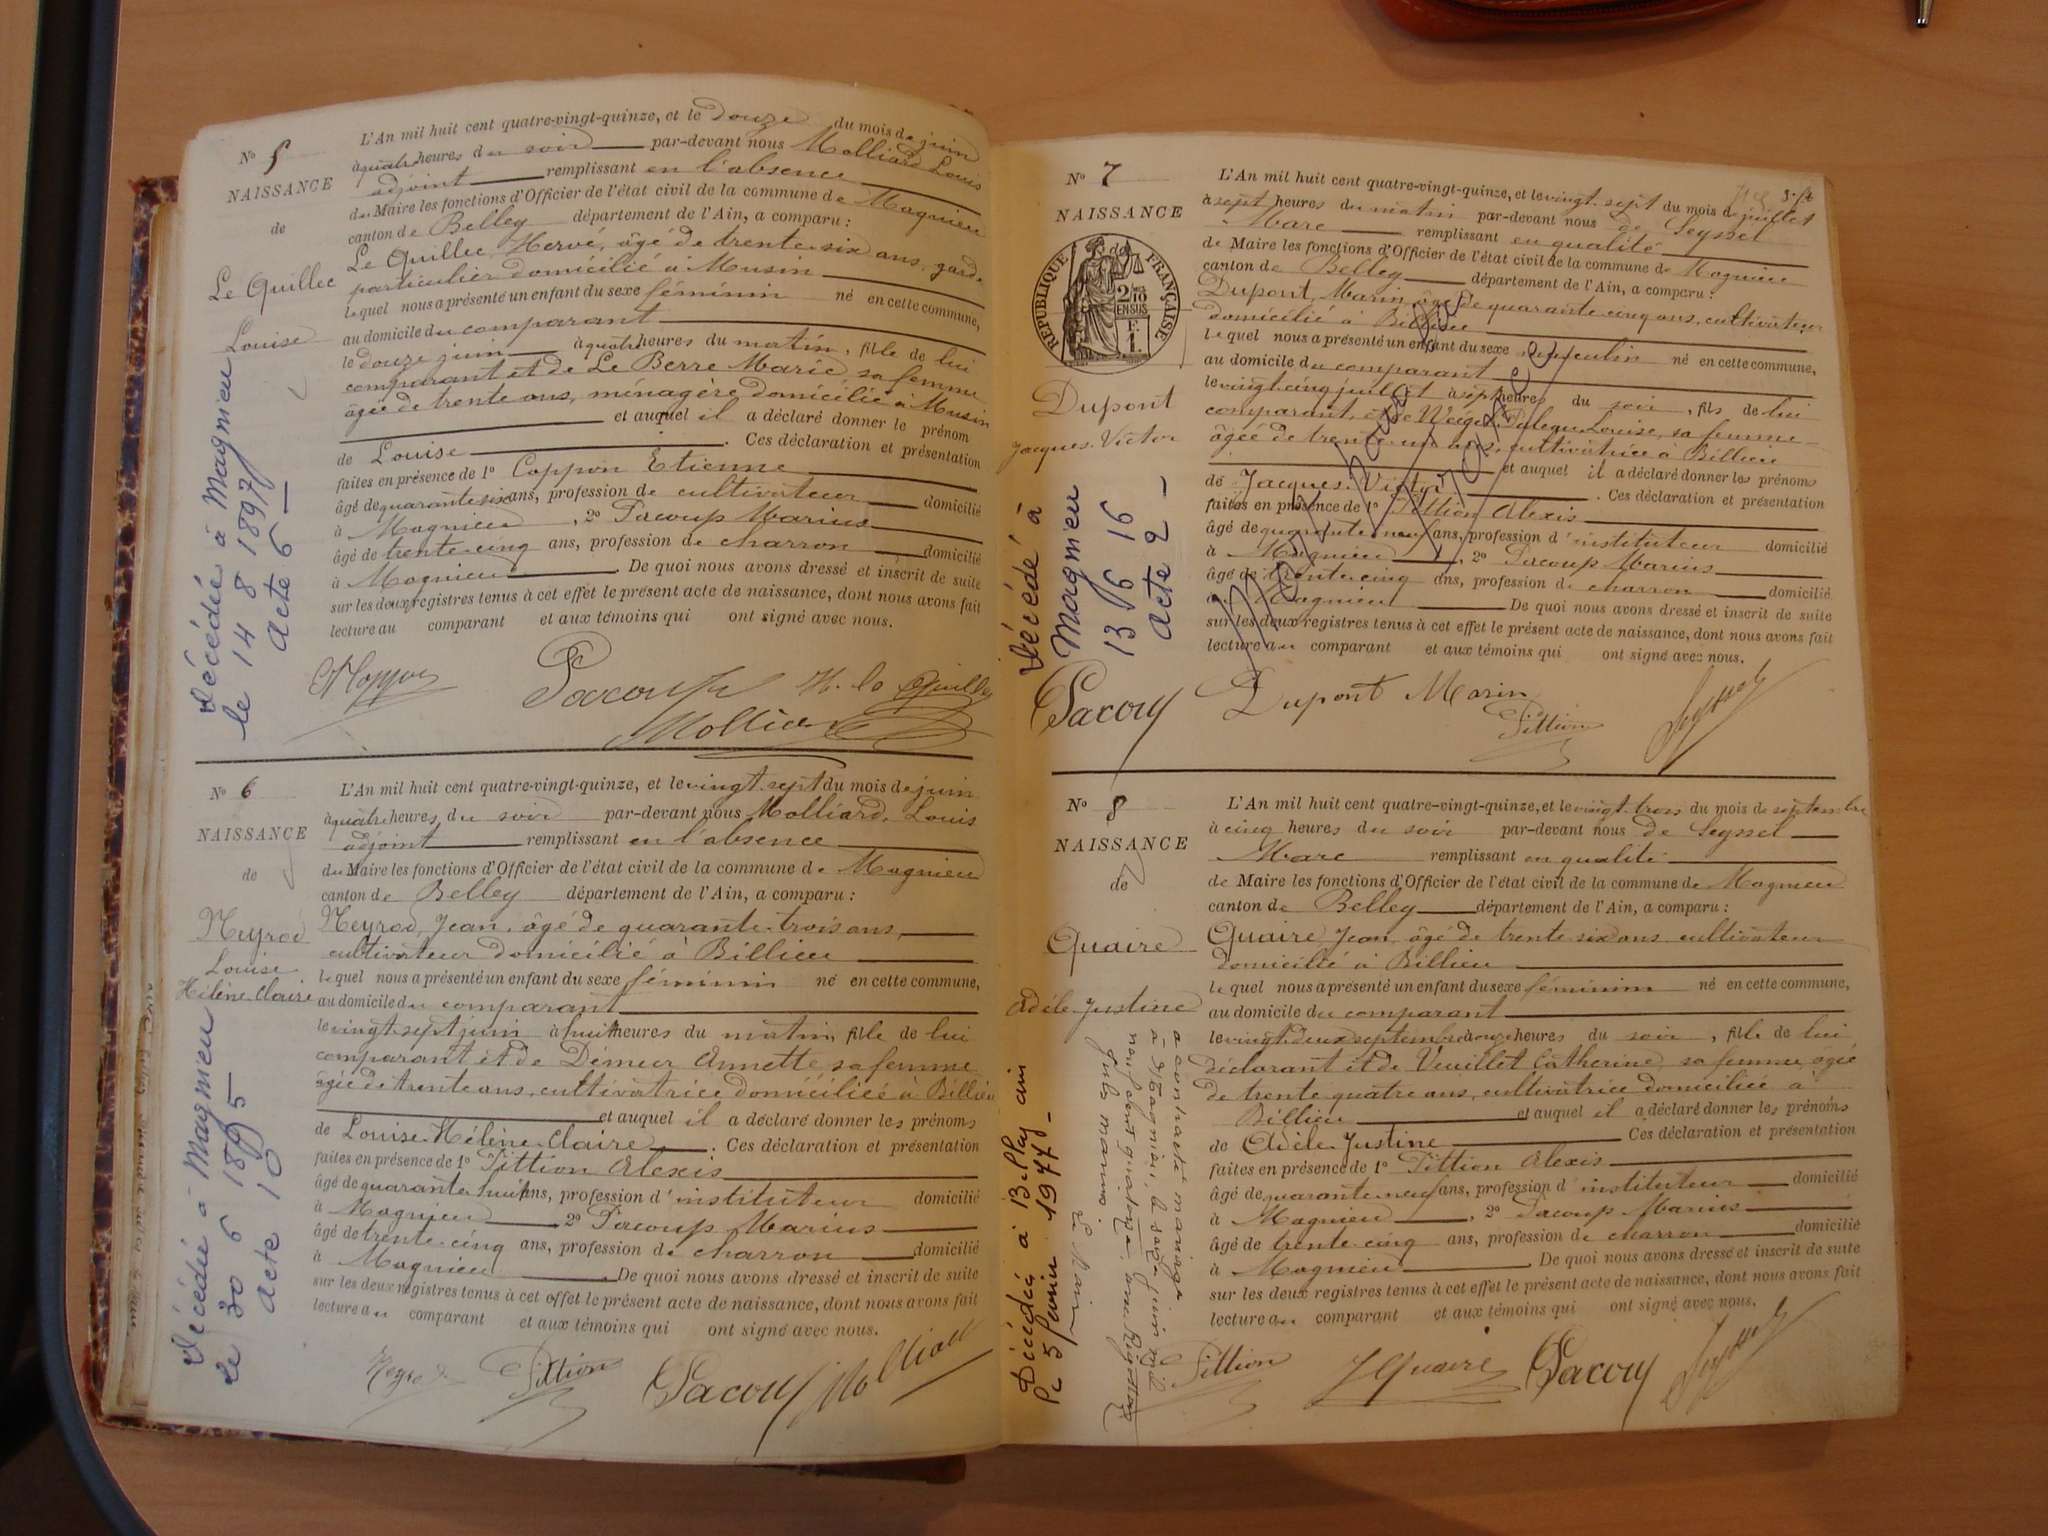 N° 5
NAISSANCE
de
Le Quillec
Louise
Décédée à Magnieu
le 14 8 1897
acte 6
L'An mil huit cent quatre-vingt-quinze, et le douze du mois de juin
à quatre heures du soir par-devant nous Molliard Louis
adjoint remplissant en l'absence
du Maire les fonctions d'Officier de l'état civil de la commune de Magnieu
canton de Belley département de l'Ain, a comparu :
Le Quillec, Hervé, âgé de trente-six ans, garde
particulier domicilié à Musin
lequel nous a présenté un enfant du sexe féminin né en cette commune,
au domicile du comparant
le douze juin à quatre heures du matin, fille de lui
comparant et de Le Berre Marie sa femme
âgée de trente ans, ménagère domiciliée à Musin
et auquel il a déclaré donner le prénom
de Louise . Ces déclaration et présentation
faites en présence de 1° Coppon Etienne
âgé de quarante six ans, profession de cultivateur domicilié
à Magnieu , 2° Pacoup Marius
âgé de trente-cinq ans, profession de charron domicilié
à Magnieu . De quoi nous avons dressé et inscrit de suite
sur les deux registres tenus à cet effet le présent acte de naissance, dont nous avons fait
lecture au comparant et aux témoins qui ont signé avec nous.
Pacoup H. le Quillec
Molliard
N° 6
NAISSANCE
de
Neyrod
Louise
Hélène Claire
Décédée à Magnieu
le 30 6 1895
acte 10
L'An mil huit cent quatre-vingt-quinze, et le vingt-sept du mois de juin
à quatre heures du soir par-devant nous Molliard, Louis
adjoint remplissant en l'absence
du Maire les fonctions d'Officier de l'état civil de la commune de Magnieu
canton de Belley département de l'Ain, a comparu :
Neyrod, Jean, âgé de quarante-trois ans,
cultivateur domicilié à Billieu
lequel nous a présenté un enfant du sexe féminin né en cette commune,
au domicile du comparant
le vingt-sept juin à huit heures du matin, fille de lui
comparant et de Démeur Annette sa femme
âgée de trente ans, cultivatrice domiciliée à Billieu
et auquel il a déclaré donner les prénoms
de Louise Hélène Claire . Ces déclaration et présentation
faites en présence de 1° Pittion Alexis
âgé de quarante huit ans, profession d'instituteur domicilié
à Magnieu 2° Pacoup Marius
âgé de trente-cinq ans, profession de charron domicilié
à Magnieu . De quoi nous avons dressé et inscrit de suite
sur les deux registres tenus à cet effet le présent acte de naissance, dont nous avons fait
lecture au comparant et aux témoins qui ont signé avec nous.
Neyrod Pittion Pacoup Molliard
N° 7
NAISSANCE
de
RÉPUBLIQUE FRANÇAISE
2/10
EN SUS
F.
1.
Dupont
Jacques-Victor
Décédé à
Magnieu
13 6 16
acte 2
L'An mil huit cent quatre-vingt-quinze, et le vingt-sept du mois de juillet
à sept heures du matin par-devant nous de Seyssel
Marc remplissant en qualité
de Maire les fonctions d'Officier de l'état civil de la commune de Magnieu
canton de Belley département de l'Ain, a comparu :
Dupont, Marin âgé de quarante cinq ans, cultivateur
domicilié à Billieu
lequel nous a présenté un enfant du sexe masculin né en cette commune,
au domicile du comparant
le vingt-cinq juillet à sept heures du soir, fils de lui
comparant, et de Louise, sa femme
âgée de trente ans, cultivatrice à Billieu
et auquel il a déclaré donner les prénoms
de Jacques-Victor . Ces déclaration et présentation
faites en présence de 1° Pittion Alexis
âgé de quarante-neuf ans, profession d'instituteur domicilié
à Magnieu , 2° Pacoup Marius
âgé de trente-cinq ans, profession de charron domicilié
à Magnieu De quoi nous avons dressé et inscrit de suite
sur les deux registres tenus à cet effet le présent acte de naissance, dont nous avons fait
lecture au comparant et aux témoins qui ont signé avec nous.
Mort pour la
France
Pacoup Dupont Marin Pittion
N° 8
NAISSANCE
de
Quaire
Adèle-Justine
a contracté mariage
Le Maire
Décédée à Belley ain
le 5 1977
L'An mil huit cent quatre-vingt-quinze, et le vingt-trois du mois de septembre
à cinq heures du soir par-devant nous de Seyssel
Marc remplissant en qualité
de Maire les fonctions d'Officier de l'état civil de la commune de Magnieu
canton de Belley département de l'Ain, a comparu :
Quaire, Jean, âgé de trente-six ans cultivateur
domicilié à Billieu
lequel nous a présenté un enfant du sexe féminin né en cette commune,
au domicile du comparant
le vingt-deux septembre à onze heures du soir, fille de lui
déclarant et de Veuillet Catherine, sa femme, âgée
de trente quatre ans, cultivatrice domiciliée à
Billieu et auquel il a déclaré donner les prénoms
de Adèle-Justine Ces déclaration et présentation
faites en présence de 1° Pittion Alexis
âgé de quarante-neuf ans, profession d'instituteur domicilié
à Magnieu , 2° Pacoup Marius
âgé de trente-cinq ans, profession de charron domicilié
à Magnieu . De quoi nous avons dressé et inscrit de suite
sur les deux registres tenus à cet effet le présent acte de naissance, dont nous avons fait
lecture au comparant et aux témoins qui ont signé avec nous.
Pittion J Quaire Pacoup